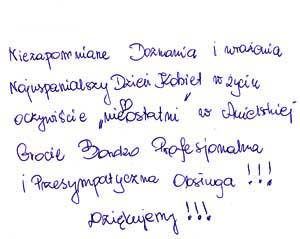 Niezapomniane Doznania i wrażenia
Najwspanialszy Dzień Kobiet w życiu
oczywiście "nieostatni" w Anielskiej
Grocie Bardzo Profesjonalna
i Przesympatyczna Obsługa !!!
Dziękujemy !!!